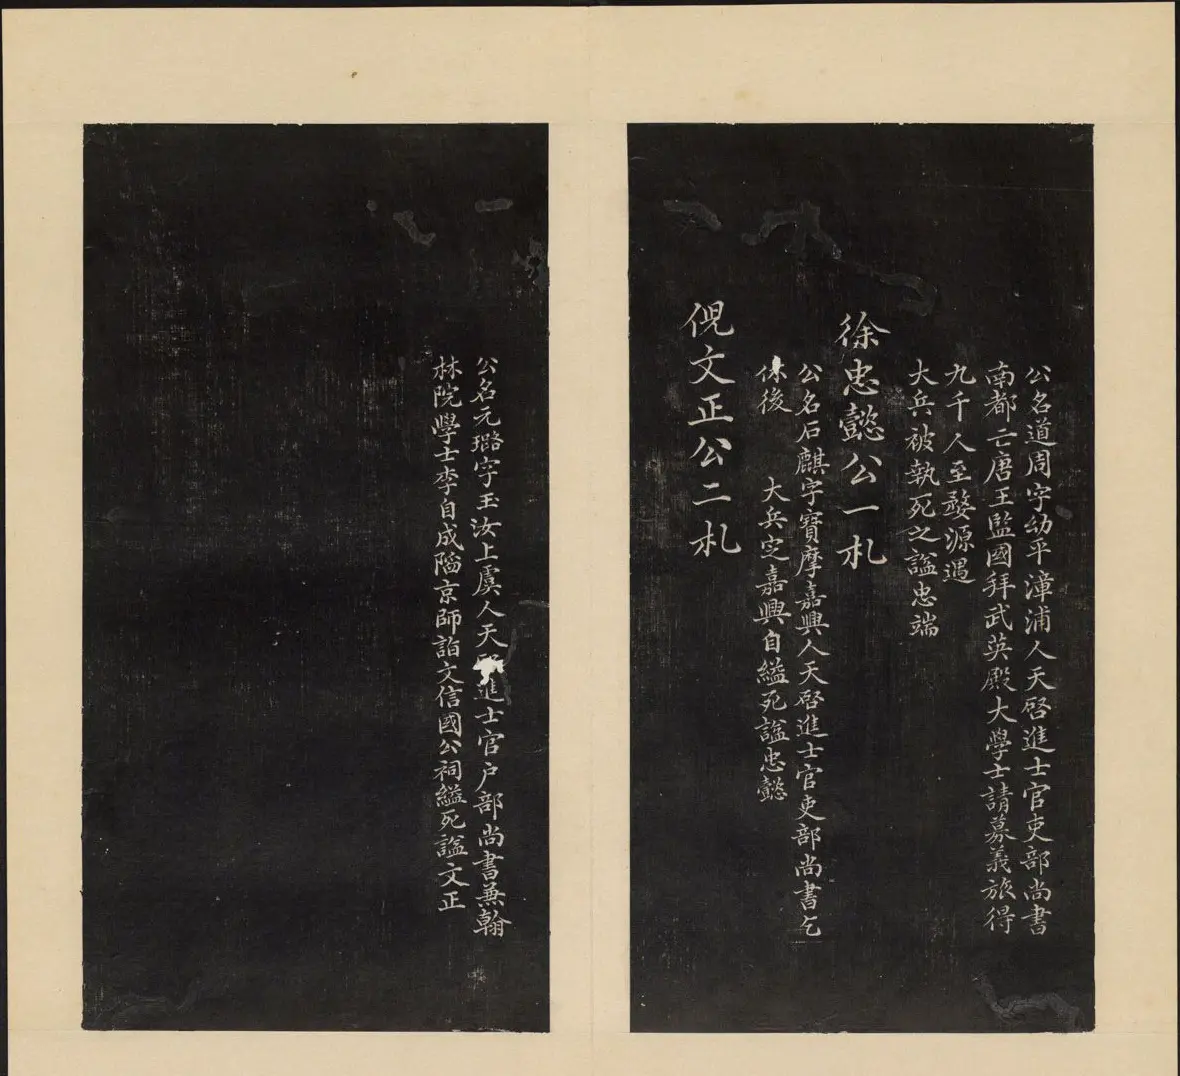 公名道周字幼平漳浦人天啓進士官吏部尚書
南都亡唐王監國拜武英殿大學士請募義旅得
九千人至婺源遇
大兵被執死之諡忠端
徐忠懿公一札
公名石麒字寶摩嘉興人天啓進士官吏部尚書乞
休後 大兵定嘉興自縊死諡忠懿
倪文正公二札
公名元璐字玉汝上虞人天啓進士官户部尚書兼翰
林院學士李自成陷京師詣文信國公祠縊死諡文正